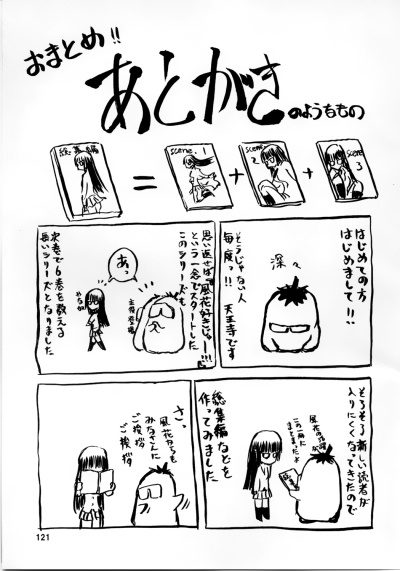 おまとめ!!
あとがき
のようなもの
総集編
scene.1
scene 2
scene 3
=
+
+
はじめての方
はじめまして!!
深々
そうじゃない人
毎度っ!!天王寺です
思い返せば“風花好きじゃー!!!”
という一念でスタートした
このシリーズも
あっ
主役登場
次巻で6巻を数える
長いシリーズとなりました
そろそろ新しい読者が
入りにくくなってきたので
この一冊に
まとまったよ
総集編なぞを
作ってみました
さっ
風花からも
みなさんに
ご挨拶
ご挨拶
121